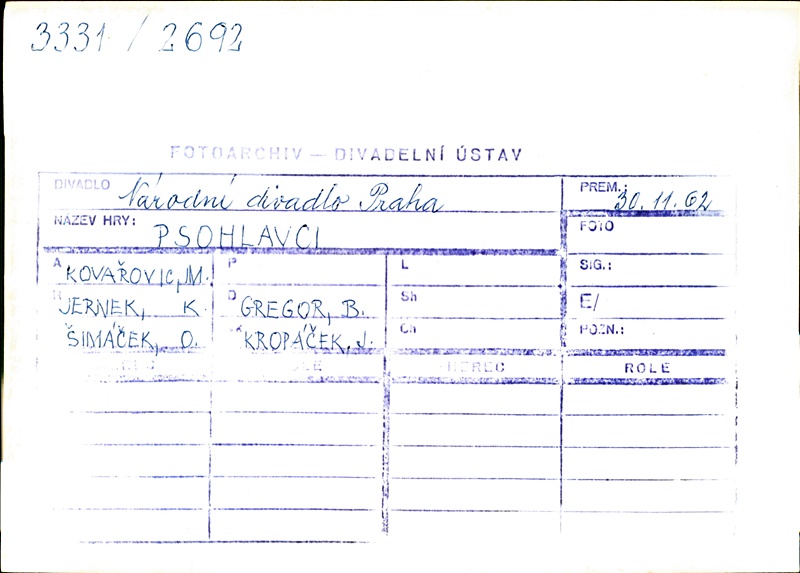 3331 / 2692
FOTOARCHIV — DIVADELNÍ ÚSTAV
DIVADLO Národní divadlo Praha
PREM.: 30. 11. 62
NÁZEV HRY: PSOHLAVCI
FOTO
A KOVAŘOVIC, M.
P
L
SIG.:
R JERNEK, K.
D GREGOR, B.
Sh
E/
ŠIMÁČEK, O.
K KROPÁČEK, J.
Ch
POZN.:
HEREC ROLE